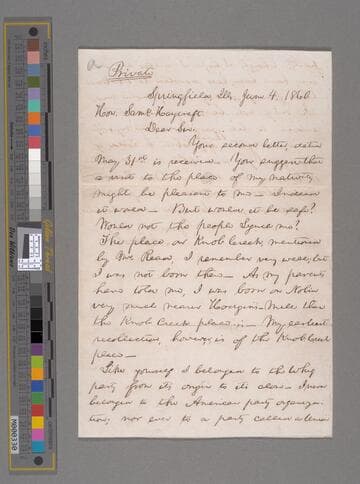 Private
Springfield, Ills. June 4, 1860
Hon. Saml. Haycraft
Dear Sir:
Your second letter, dated
May 31st is received. You suggest that
a visit to the place of my nativity
might be pleasant to me— Indeed
it would— But would it be safe?
Would not the people Lynch me?
The place on Knob Creek, mentioned
by Mr. Read, I remember very well; but
I was not born there— As my parents
have told me, I was born on Nolin
very much nearer Hodgins-Mill than
the Knob Creek place is— My earliest
recollection, however, is of the Knob Creek
place—
Like yourself I belonged to the Whig
party from its origin to its close— I never
belonged to the American party organiza-
tion; nor ever to a party called a Union